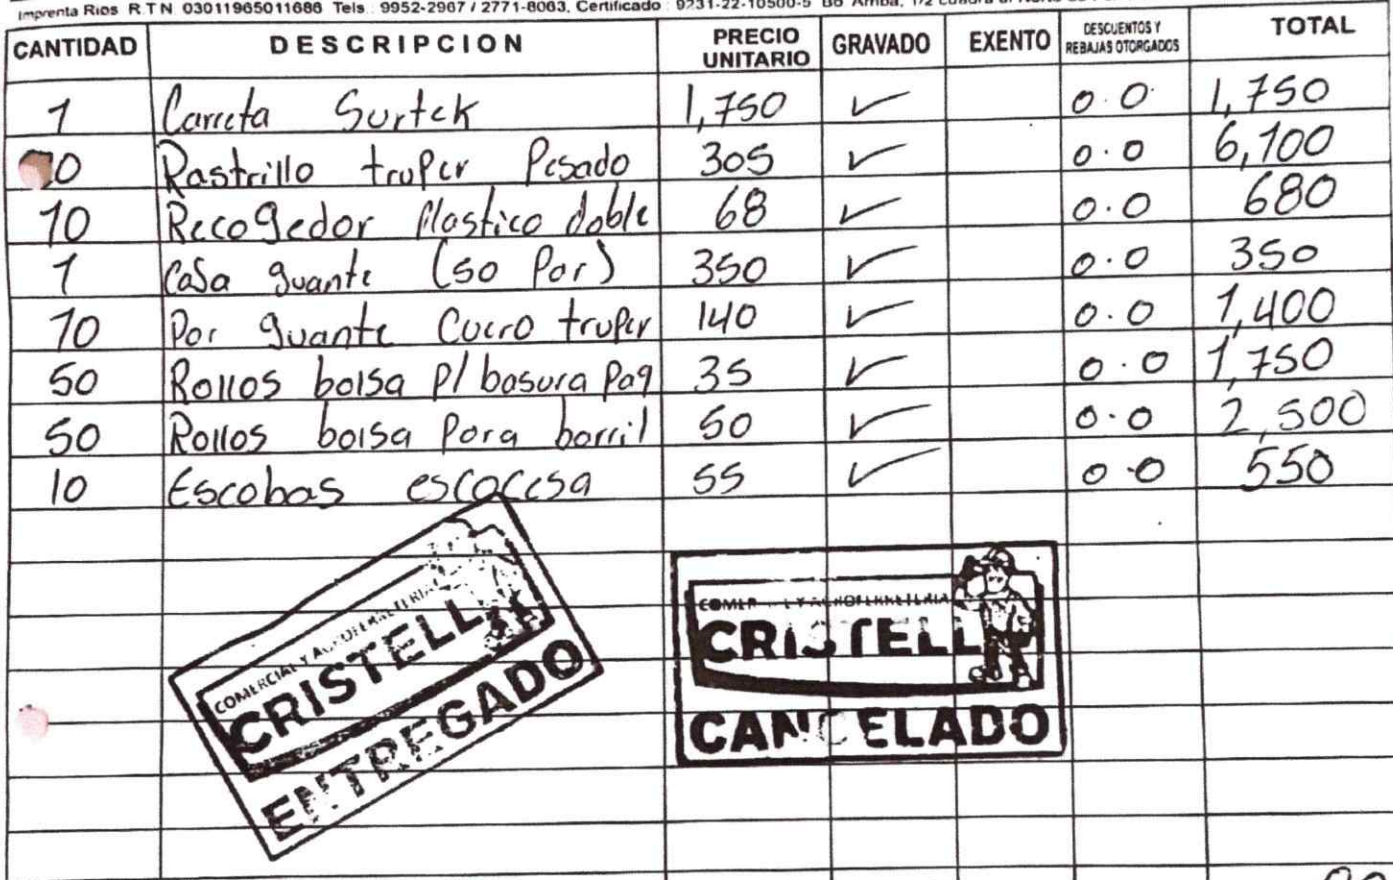 Imprenta Rios R.T.N. 03011965011686 Tels.: 9952-2967 / 2771-8063, Certificado : 9231-22-10500-5 Bo Arriba, 1/2 cuadra al Norte
CANTIDAD DESCRIPCION PRECIO UNITARIO GRAVADO EXENTO DESCUENTOS Y REBAJAS OTORGADOS TOTAL
1 Carreta Surtek 1,750 ✓ 0.0 1,750
0 Rastrillo truper Pesado 305 ✓ 0.0 6,100
10 Recogedor Plastico doble 68 ✓ 0.0 680
1 Casa guante (50 Par) 350 ✓ 0.0 350
10 Par guante Cuero truper 140 ✓ 0.0 1,400
50 Rollos bolsa p/ basura paq 35 ✓ 0.0 1,750
50 Rollos bolsa para barril 50 ✓ 0.0 2,500
10 Escobas escocesa 55 ✓ 0.0 550
COMERCIAL Y AGROFERRETERIA
CRISTELL
ENTREGADO
COMERCIAL Y AGROFERRETERIA
CRISTELL
CANCELADO